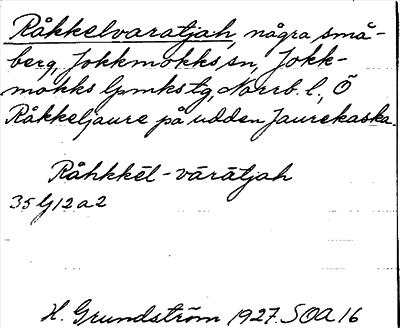 Råkkelvaratjah, några små-
berg, Jokkmokks sn, Jokk-
mokks lpmkstg, Norrb. l., Ö
Råkkeljaure på udden Jaurekaska.
Råhkkēl-vārātjah
35 G 12 a 2
H. Grundström 1927. SOA 16